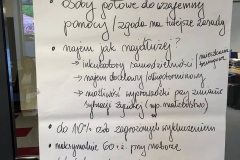 • osoby gotowe do wzajemnej
pomocy / zgoda na tutejsze zasady
• najem jak najdłuższy?
→ inkubatory samodzielności
→ najem docelowy (długoterminowy)
→ możliwość wyprowadzki przy zmianie
sytuacji życiowej (np. małżeństwo)
• do 10% osób zagrożonych wykluczeniem
• maksymalnie 60 r.ż. przy naborze